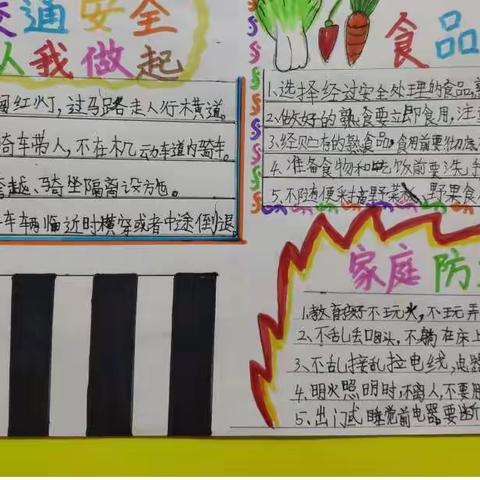 交通安全
从我做起
闯红灯，过马路走人行横道。
骑车带人，不在机动车道内骑车。
跨越、骑坐隔离设施。
车辆临近时横穿或者中途倒退
食品
1.选择经过安全处理的食品，
2.做好的熟食要立即食用，注
3.经贮存的熟食品，食用前要彻底
4.准备食物和吃饭前要洗手
5.不随便采摘野菜、野果食
家庭防
1.教育孩子不玩火，不玩弄
2.不乱丢烟头，不躺在床上
3.不乱接乱拉电线，电器
4.明火照明时不离人，不要用
5.出门或睡觉前电器要断